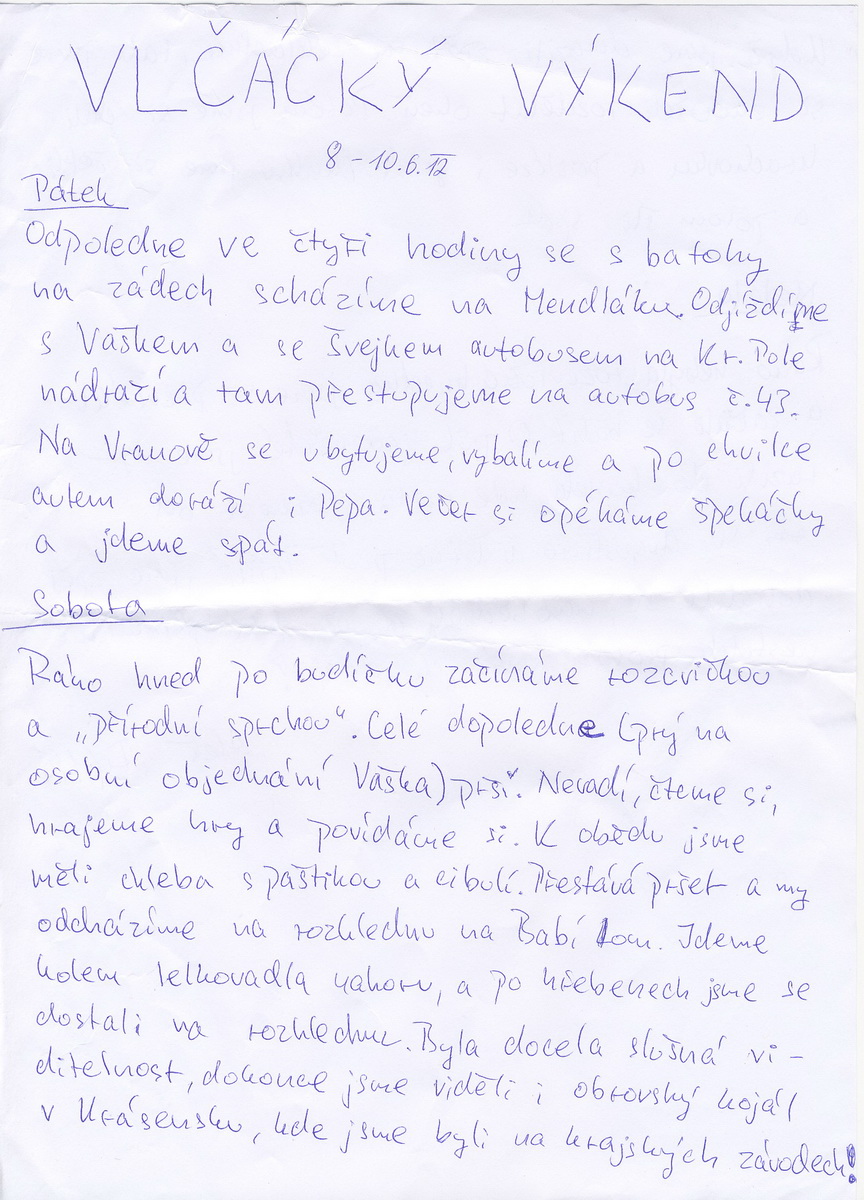 VLČÁCKÝ VÝKEND
8 - 10.6.12
Pátek
Odpoledne ve čtyři hodiny se s batohy
na zádech scházíme na Mendláku. Odjíždíme
s Vaškem a se Švejkem autobusem na Kr. Pole
nádraží a tam přestupujeme na autobus č.43.
Na Vranově se ubytujeme, vybalíme a po chvilce
autem dorází i Pepa. Večer si opékáme špekáčky
a jdeme spát.
Sobota
Ráno hned po budíčku začínáme rozcvičkou
a „přírodní sprchou“. Celé dopoledne (prý na
osobní objednání Vaška) prší. Nevadí, čteme si,
hrajeme hry a povídáme si. K obědu jsme
měli chleba s paštikou a cibulí. Přestává pršet a my
odcházíme na rozhlednu na Babí lom. Jdeme
kolem lelkovadla nahoru, a po hřebenech jsme se
dostali na rozhlednu. Byla docela slušná vi-
ditelnost, dokonce jsme viděli i obrovský kojál
v Krásensku, kde jsme byli na krajských závodech!